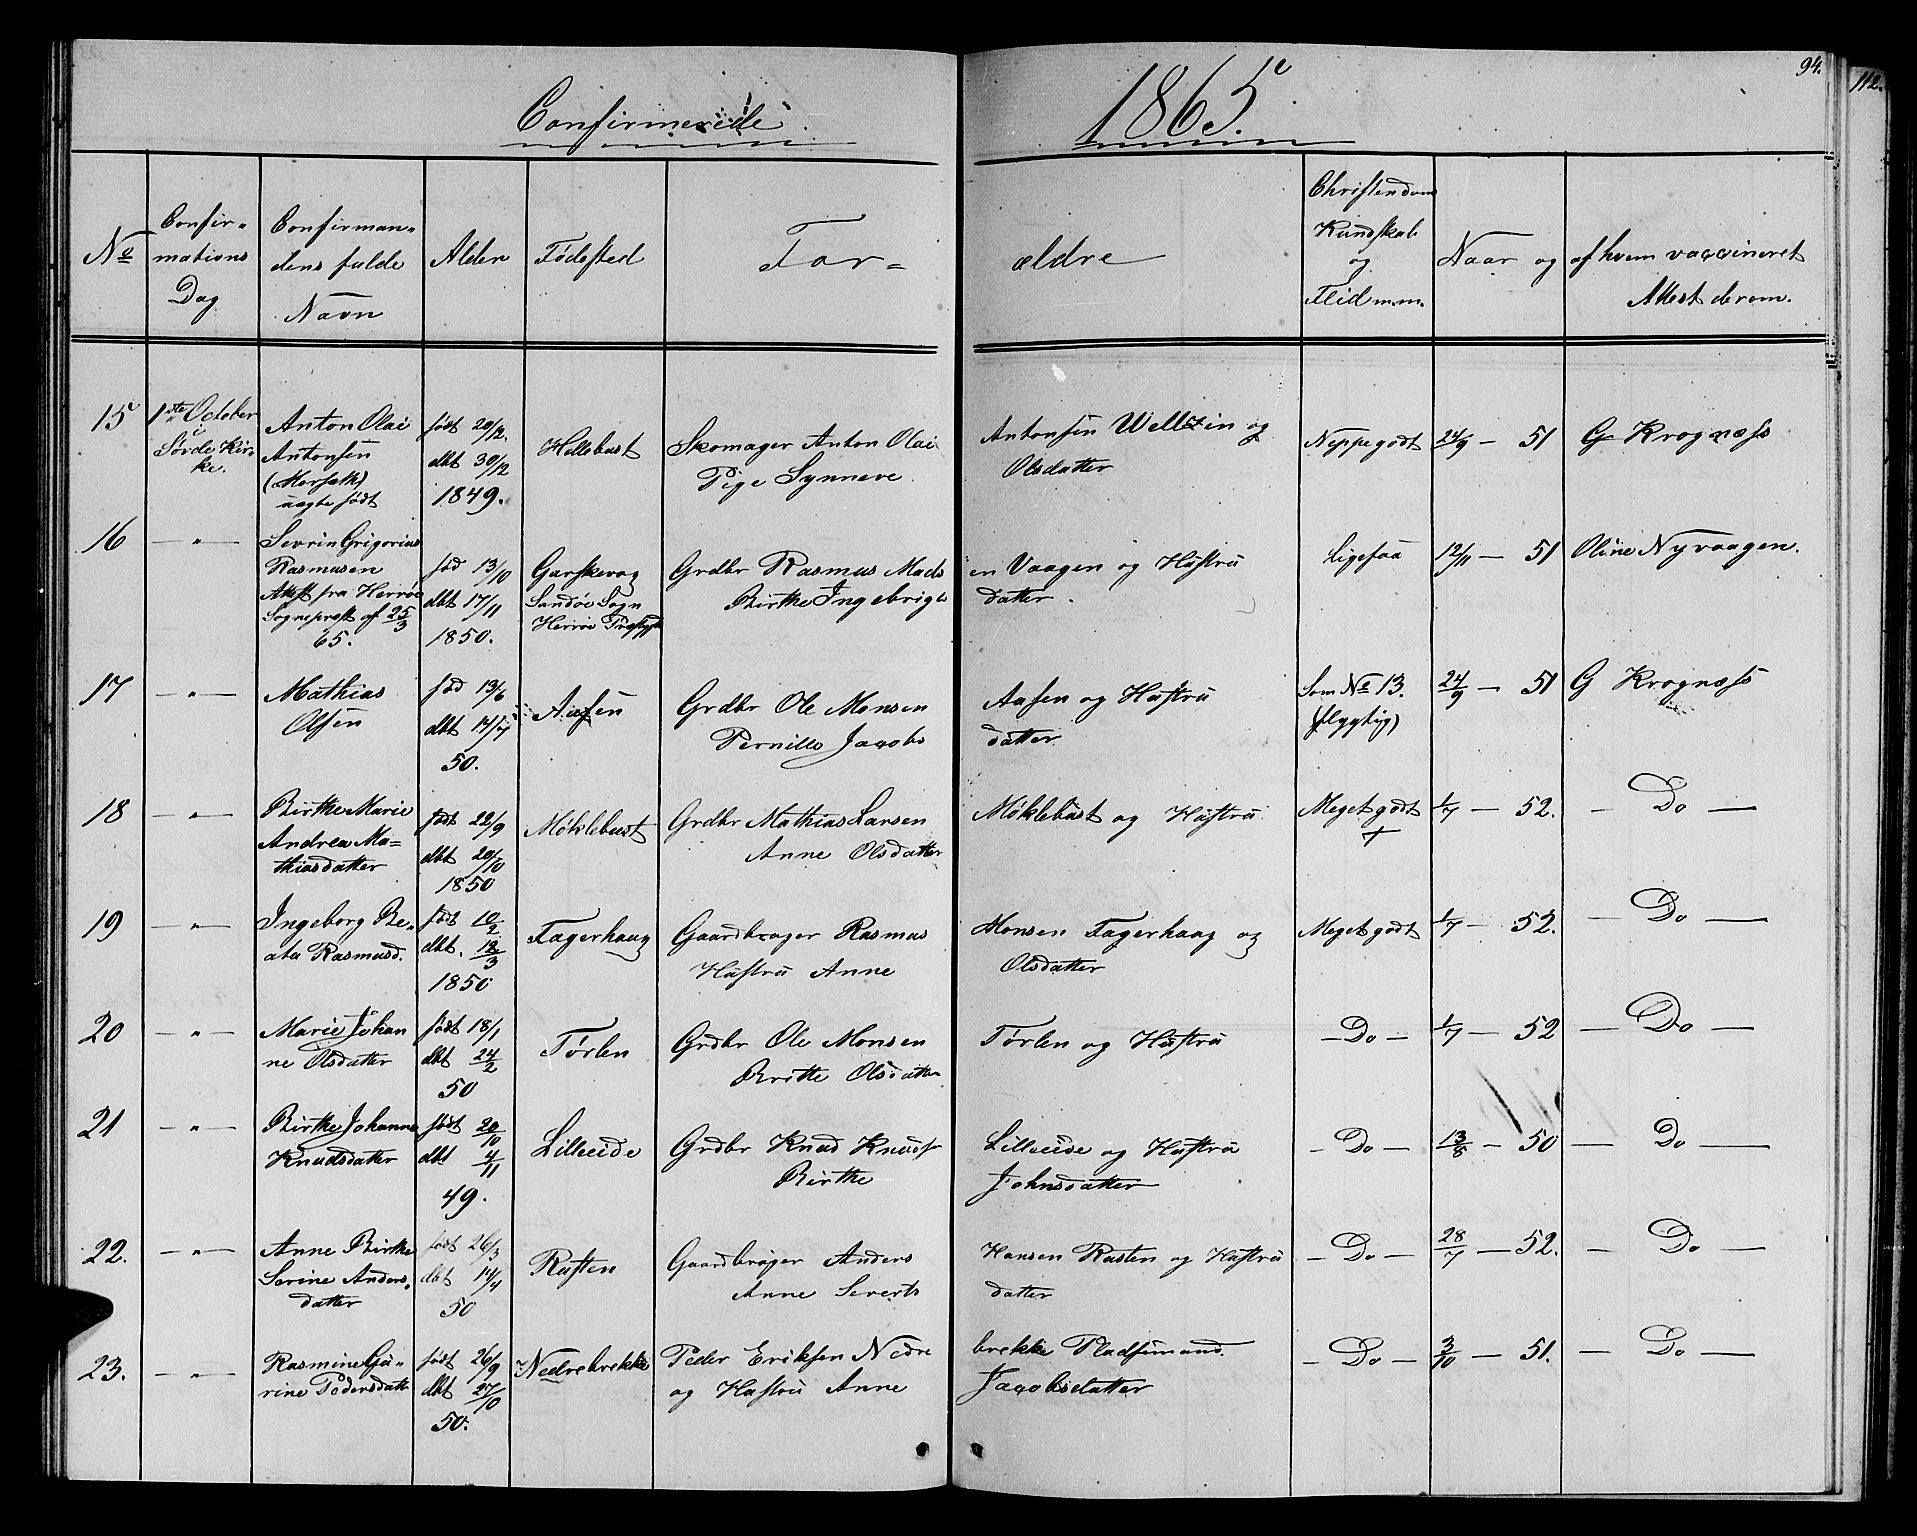 94.
112.
Confirmerede
1865.
No
Confir-
mations
Dag
Confirman-
dens fulde
Navn
Alder
Fødested
For-
ældre
Christendoms
Kundskab
og
Flid m.m.
Naar og af hvem vaccineret
Attest derom.
15
1ste October
i
Søvde Kir-
ke.
Anton Olai
Antonsen
uægte født
født 20/12.
dbt 30/12
1849.
Hellebust
Skomager Anton Olai Antonsen Wellstin og
Pige Synneve Olsdatter
Neppe godt
24/9 — 51
G Krognæss
16
— " —
Sevrin Grigorius
Rasmusen
Attest fra Herrøe
Sognepræst af 25/3
65.
fød 13/10
dbt 17/11
1850.
Gurskevog
Sandøe Sogn
Herrøe Præstgjd
Grdbr Rasmus Madsen Vaagen og Hustru
Birthe Ingebrigtsdatter.
Ligesaa
12/11 — 51
Oline Nyvaagen.
17
— " —
Mathias
Olsen
fød 13/6
dbt 14/7
50.
Aasen
Grdbr Ole Monsen Aasen og Hustru
Pernille Jacobsdatter
Som No 13.
(flygtig)
24/9 — 51
G Krognæss
18
— " —
Birthe Marie
Andrea Ma-
thiasdatter
født 22/9
dbt 20/10
1850
Møklebust
Grdbr Mathias Larsen Møklebust og Hustru
Anne Olsdatter
Meget godt
+
1/7 — 52.
— Do —
19
— " —
Ingeborg Be-
ata Rasmusd.
født 10/2
dbt. 18/3
1850
Fagerhaug
Gaardbruger Rasmus Monsen Fagerhaug og
Hustru Anne Olsdatter
Meget godt
1/7 — 52.
— Do —
20
— " —
Marie Johan
ne Olsdatter
født 18/1
dbt 24/2
50
Tørlen
Grdbr Ole Monsen Tørlen og Hustru
Britte Olsdatter
— Do —
1/7 — 52
— Do —
21
— " —
Birthe Johanne
Knudsdatter
født 20/10
dbt 4/11
49.
Lilleeide
Grdbr Knud Knuds Lilleeide og Hustru
Birthe Johnsdatter
— Do —
13/8 — 50
— Do —
22.
— " —
Anne Birthe
Serine Anders-
datter
født 26/3
dbt 14/4
50
Rusten
Gaardbruger Anders Hansen Rusten og Hustru
Anne Severtsdatter
— Do —
28/7 — 52.
— Do —
23.
— " —
Rasmine Gu-
rine Pedersdatt
født 26/9
dbt 27/10
50.
Nedrebrekke
Peder Eriksen Nedrebrekke Pladsemand
og Hustru Anne Jacobsdatter
— Do —
3/10 — 51.
— Do —